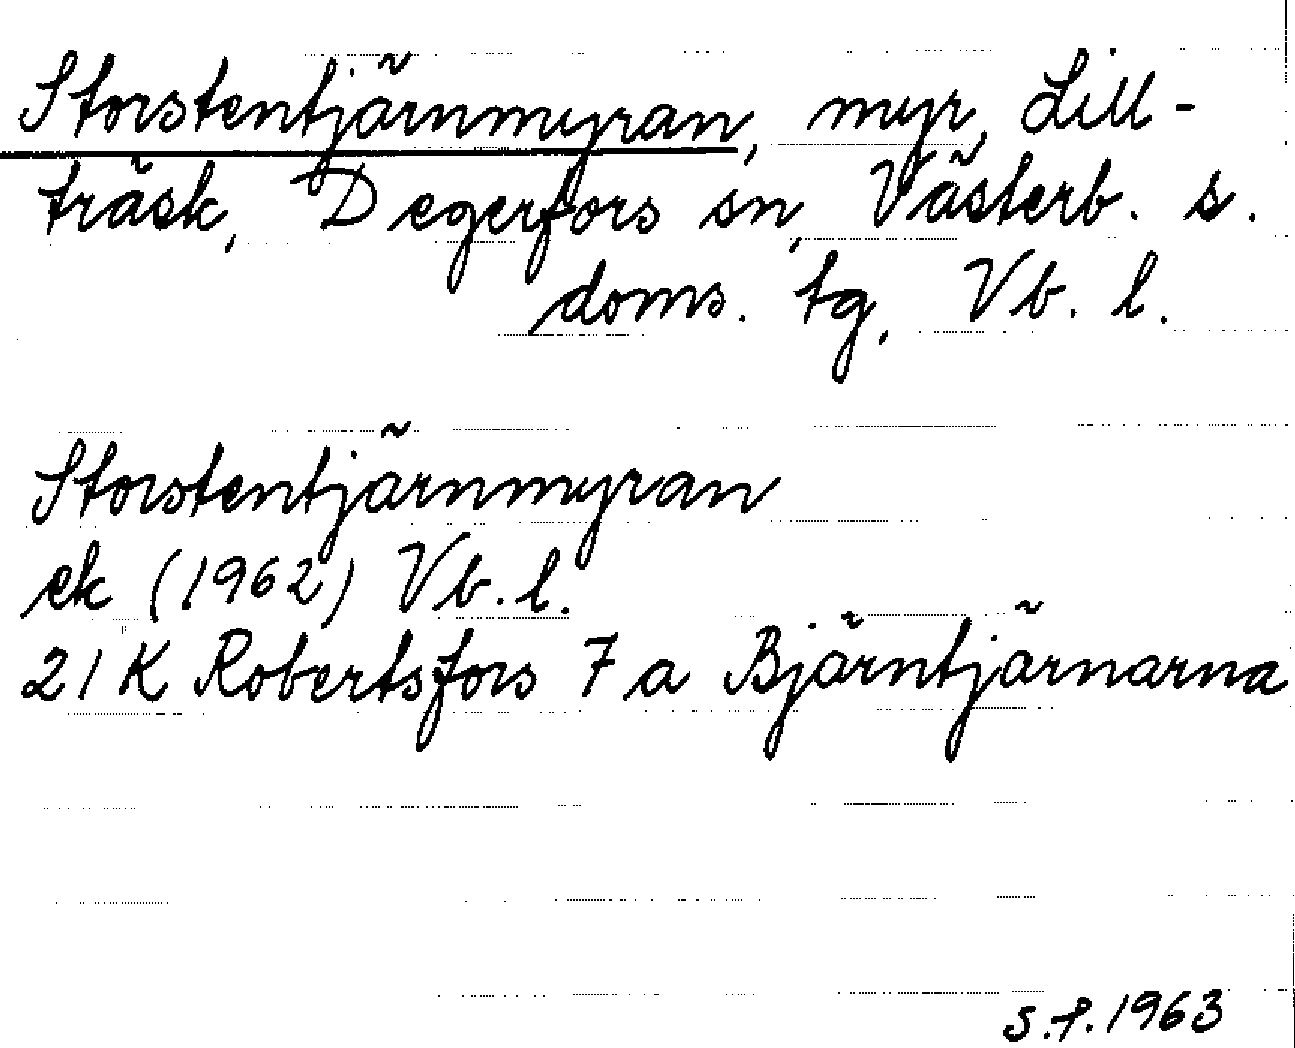 Storstentjärnmyran, myr, Lill-
träsk, Degerfors sn, Västerb. s.
doms. tg, Vb. l.
Storstentjärnmyran
ek (1962) Vb. l.
21 K Robertsfors 7 a Bjärntjärnarna
S.f. 1963